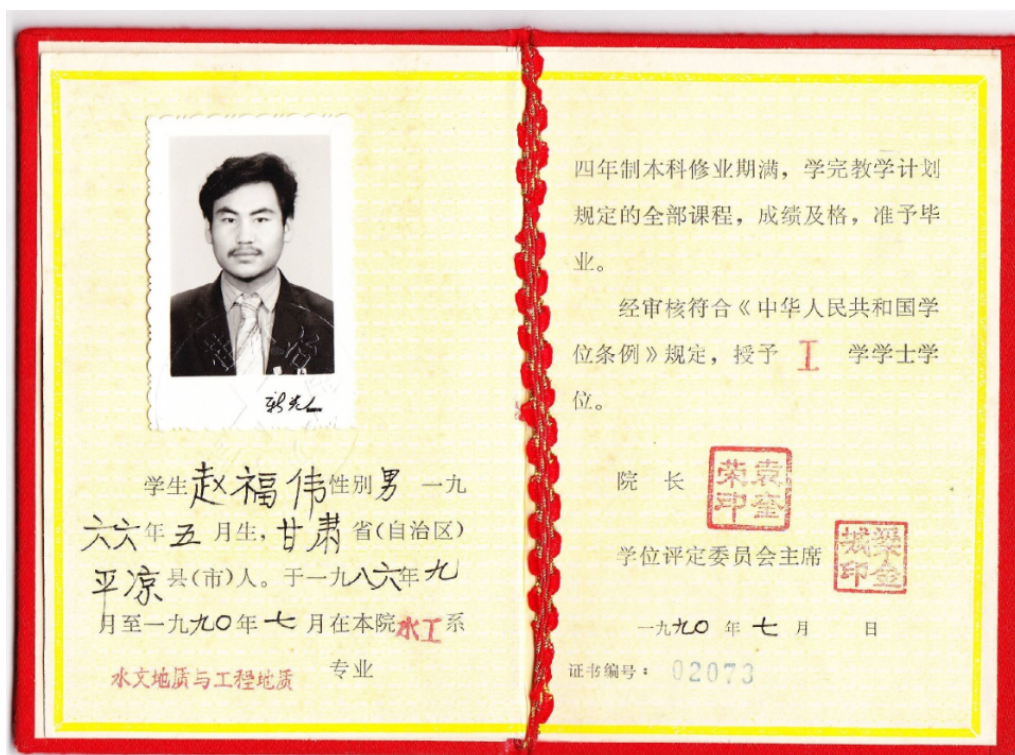 新光
学生赵福伟性别男 一九
六六年五月生，甘肃省(自治区)
平凉县(市)人。于一九八六年九
月至一九九〇年七月在本院水工系
水文地质与工程地质 专业
四年制本科修业期满，学完教学计划
规定的全部课程，成绩及格，准予毕
业。
经审核符合《中华人民共和国学
位条例》规定，授予 工 学学士学
位。
院 长 袁奎荣印
学位评定委员会主席 梁金城印
一九九〇年七月 日
证书编号：02073